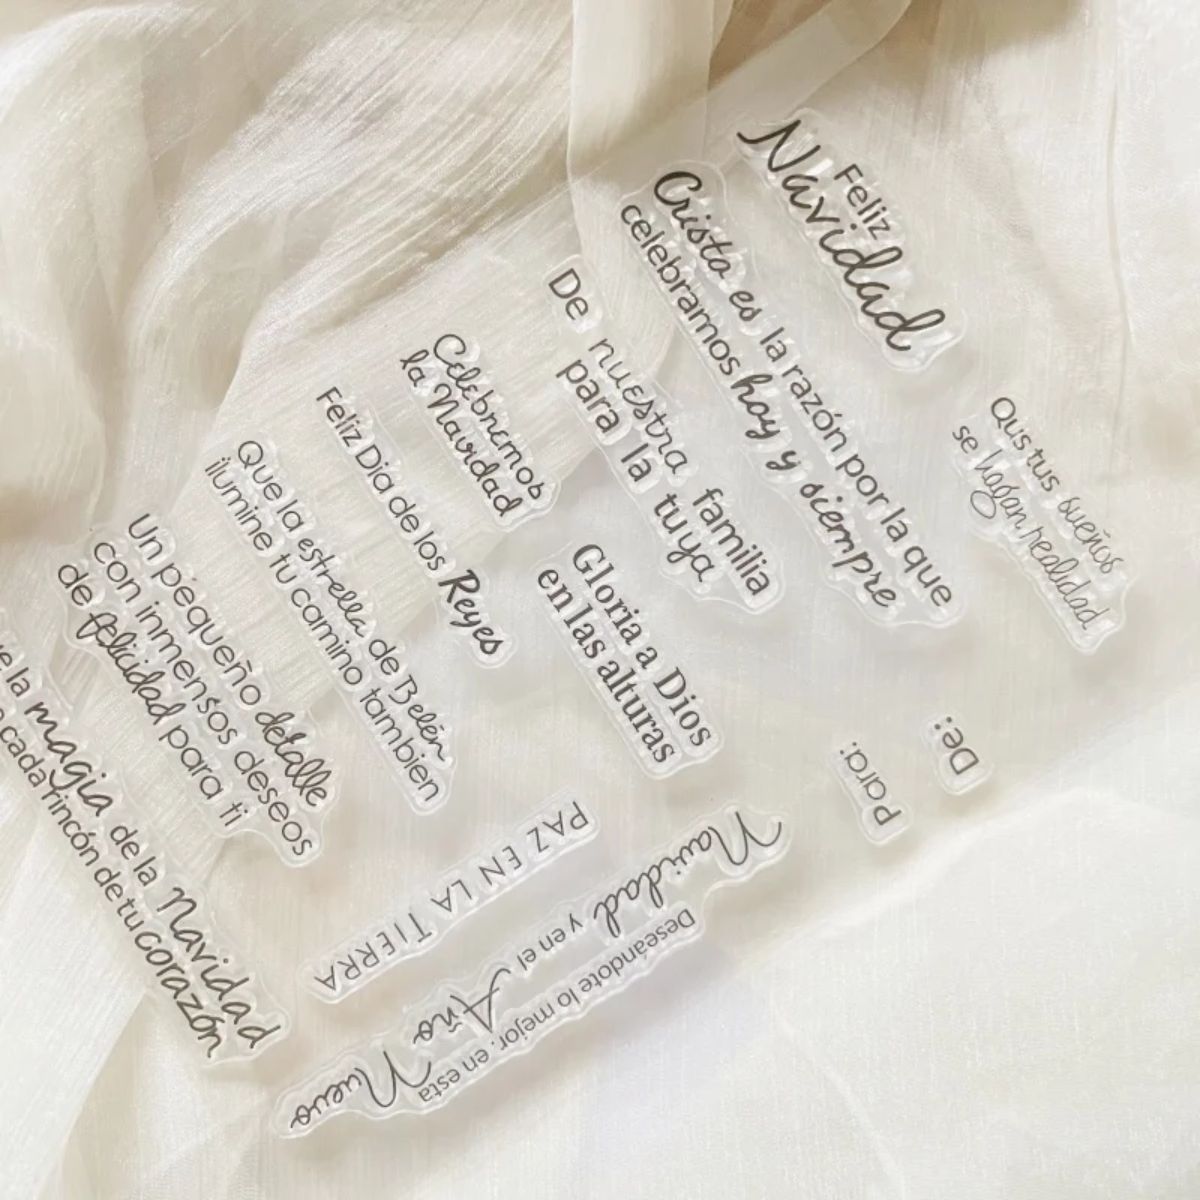 Feliz
Navidad
Cristo es la razón por la que
celebramos hoy y siempre
Qus tus sueños
se hagan realidad
De nuestra familia
para la tuya
Celebremos
la Navidad
Feliz Día de los Reyes
Gloria a Dios
en las alturas
De:
Para:
Que la estrella de Belén
ilumine tu camino también
Un pequeño detalle
con inmensos deseos
de felicidad para ti
la magia de la Navidad
cada rincón de tu corazón
PAZ EN LA TIERRA
Deseándote lo mejor, en esta
Navidad y en el Año Nuevo